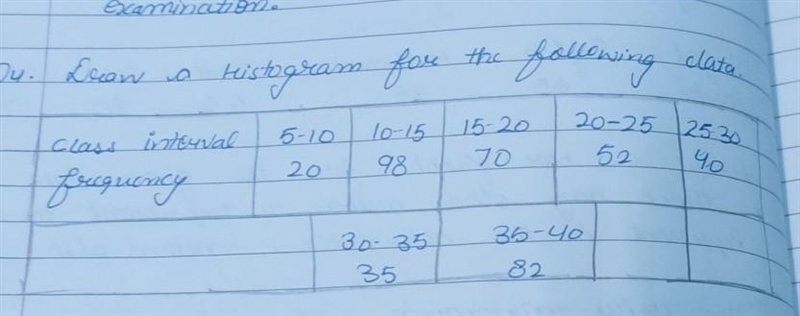 examination.
Q4. Draw a Histogram for the following data.
class interval 5-10 10-15 15-20 20-25 25-30
frequency 20 98 70 52 40
30-35 35-40
35 82